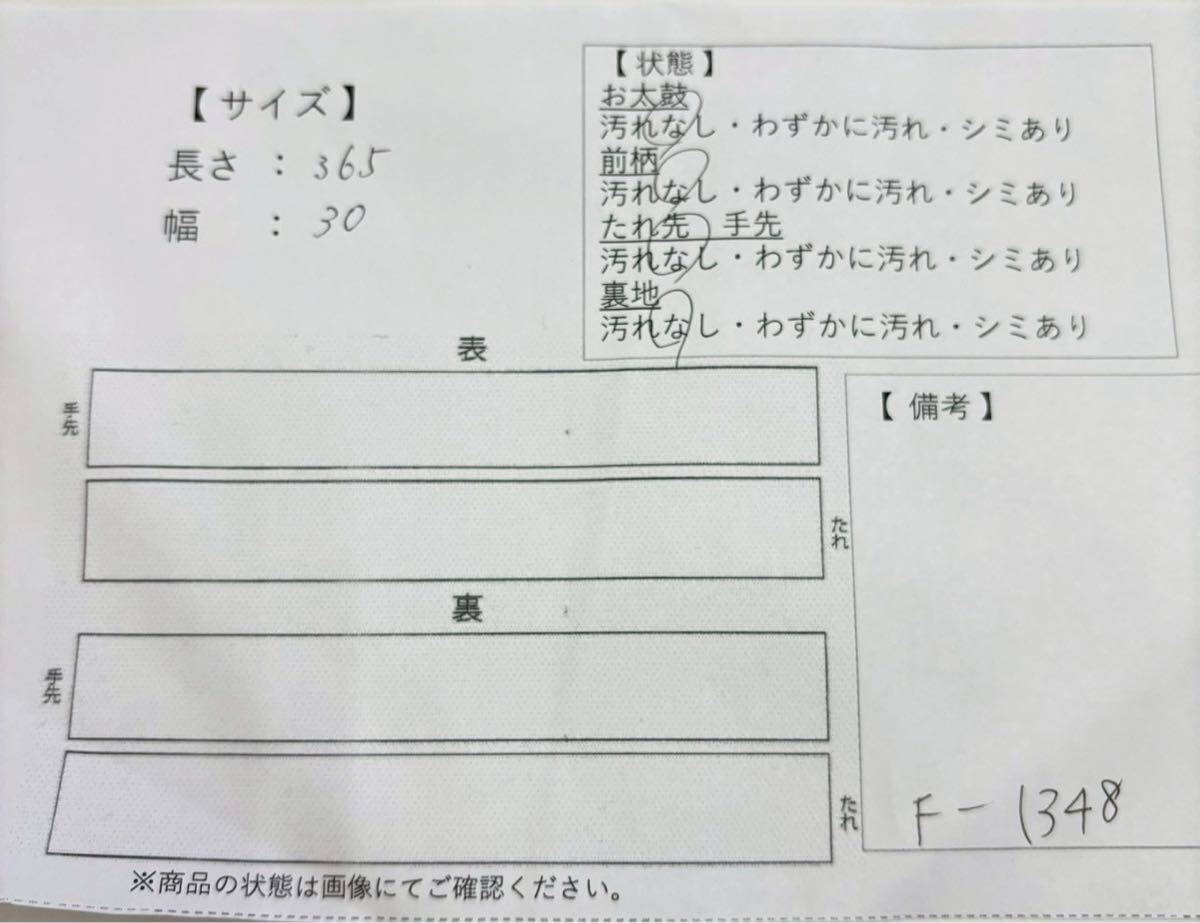 【サイズ】
長さ：365
幅：30
【状態】
お太鼓
汚れなし・わずかに汚れ・シミあり
前柄
汚れなし・わずかに汚れ・シミあり
たれ先 手先
汚れなし・わずかに汚れ・シミあり
裏地
汚れなし・わずかに汚れ・シミあり
表
手先
たれ
裏
手先
たれ
【備考】
F-1348
※商品の状態は画像にてご確認ください。